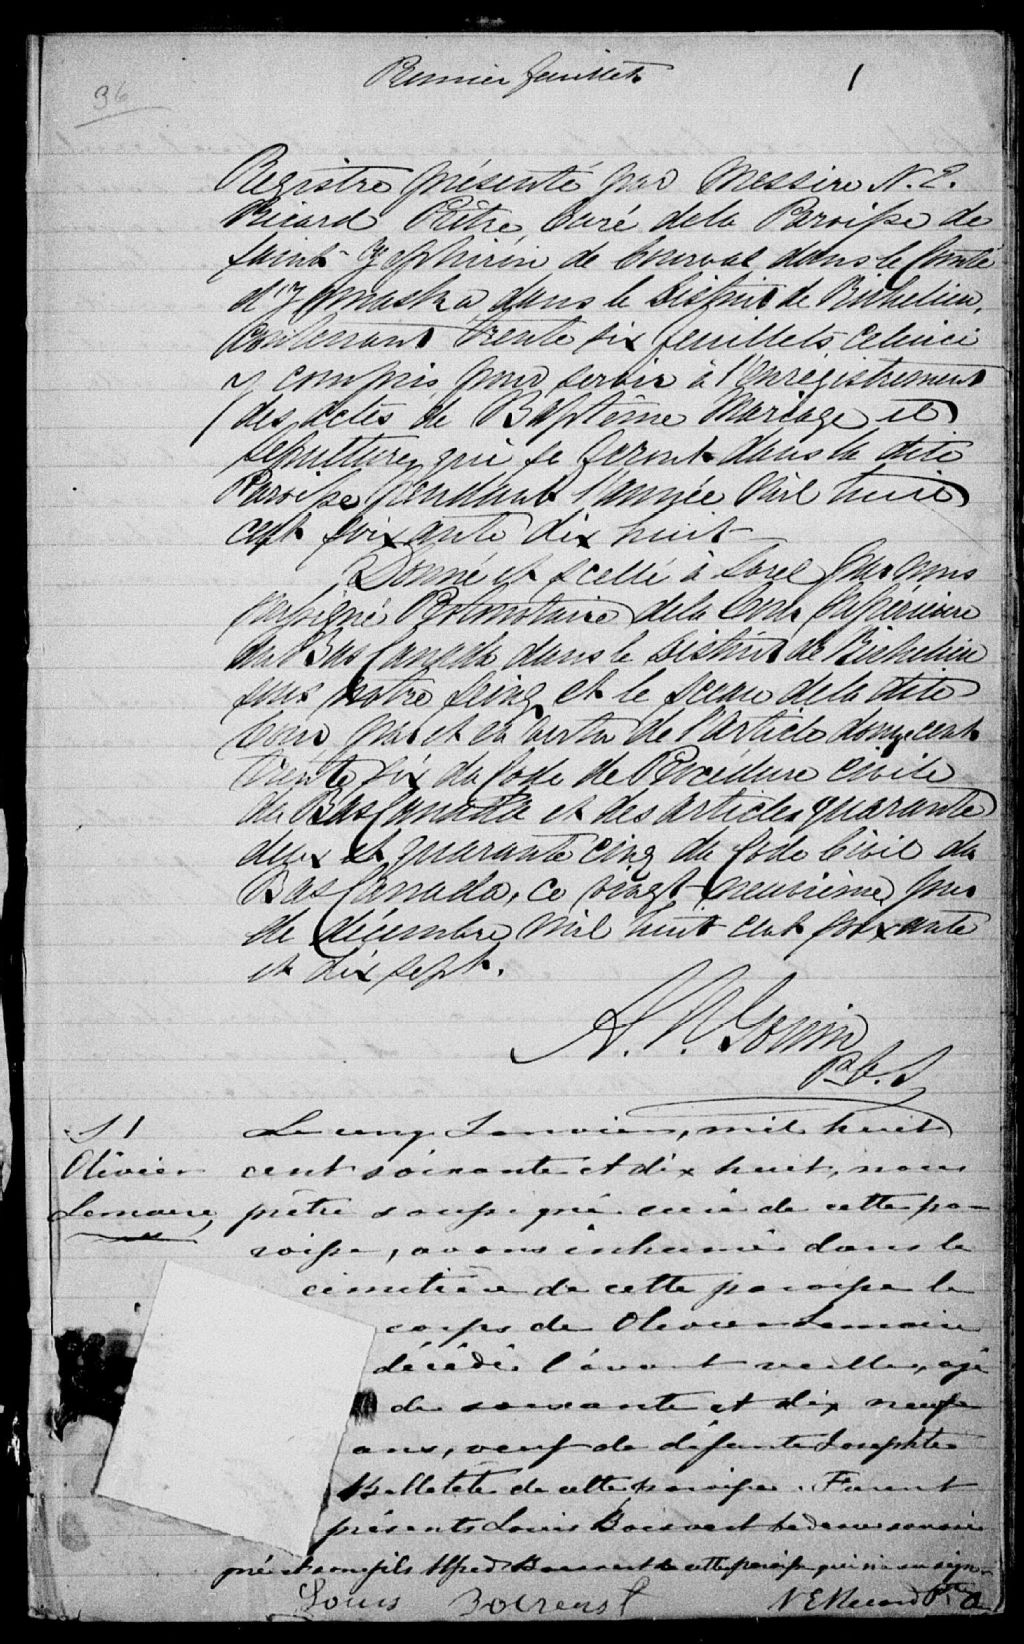 Premier feuillet
1
36
Registre présenté par Messire N. E.
Ricard Prêtre, Curé de la Paroisse de
Saint Zéphirin de Courval dans le Comté
d'Yamaska dans le District de Richelieu,
Contenant trente six feuillets celui ci
y compris pour servir à l'enregistrement
des actes de Baptême Mariage et
Sépulture, qui se feront dans la dite
Paroisse pendant l'année Mil huit
cent soixante dix huit
Donné et scellé à Sorel par nous
soussigné Protonotaire de la Cour Supérieure
du Bas Canada dans le District de Richelieu
sous notre seing et le sceau de la dite
Cour par et en vertu de l'Article douze cent
trente six du Code de Procédure civile
du Bas Canada et des articles quarante
deux et quarante cinq du Code Civil du
Bas Canada, ce vingt neuvième jour
de décembre mil huit cent soixante
et dix sept.
A. N. Gouin
P.C.S.
S 1
Olivier
Lemaire
Le cinq Janvier, mil huit
cent soixante et dix huit, nous
prêtre soussigné curé de cette pa-
roisse, avons inhumé dans le
cimetière de cette paroisse le
corps de Olivier Lemaire
décédé l'avant veille, agé
de soixante et dix neuf
ans, veuf de défunte Josephte
Belletête de cette paroisse. Furent
présents Louis Boisvert bedeau soussi-
gné et son fils Alfred Boisvert de cette paroisse qui n'a su signer
Louis Boisvert
N E Ricard Ptre C